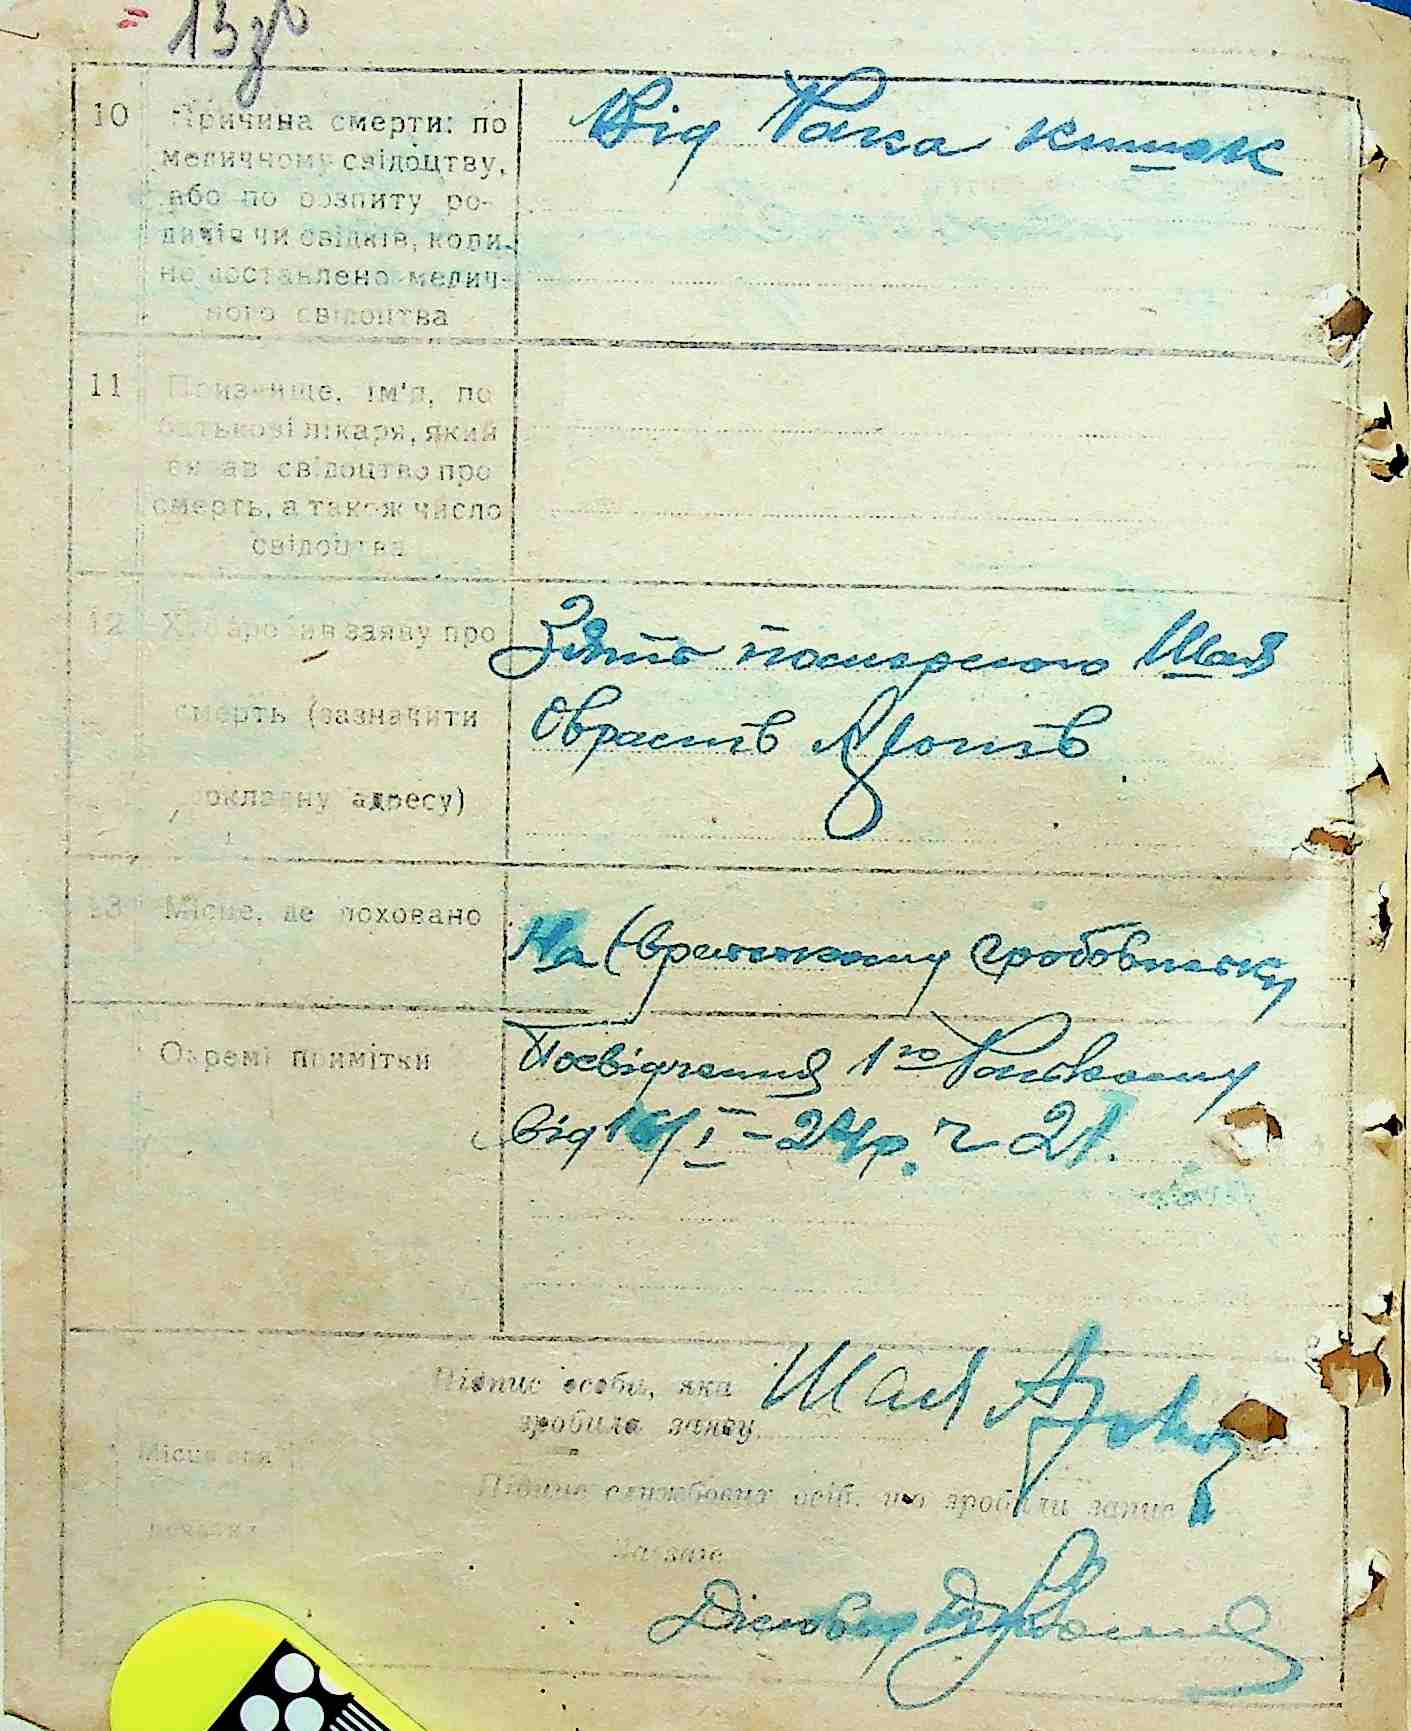 10 Причина смерти: по
медичному свідоцтву,
або по розпиту ро-
дичів чи свідків, коли
не доставлено медич-
ного свідоцтва
Від Рака кишок
11 Призвище, ім'я, по
батькові лікаря, який
видав свідоцтво про
смерть, а також число
свідоцтва
12 Хто зробив заяву про
смерть (зазначити
докладну адресу)
Зять померлого Шая
13 Місце, де поховано
На Єврейському гробовиську
Окремі примітки
Посвідчення 1го Райкому
від I – 24р. ч 21.
Підпис особи, яка
зробила заяву
Шая
Місце для
печатки
Підпис службових осіб, що зробили запис